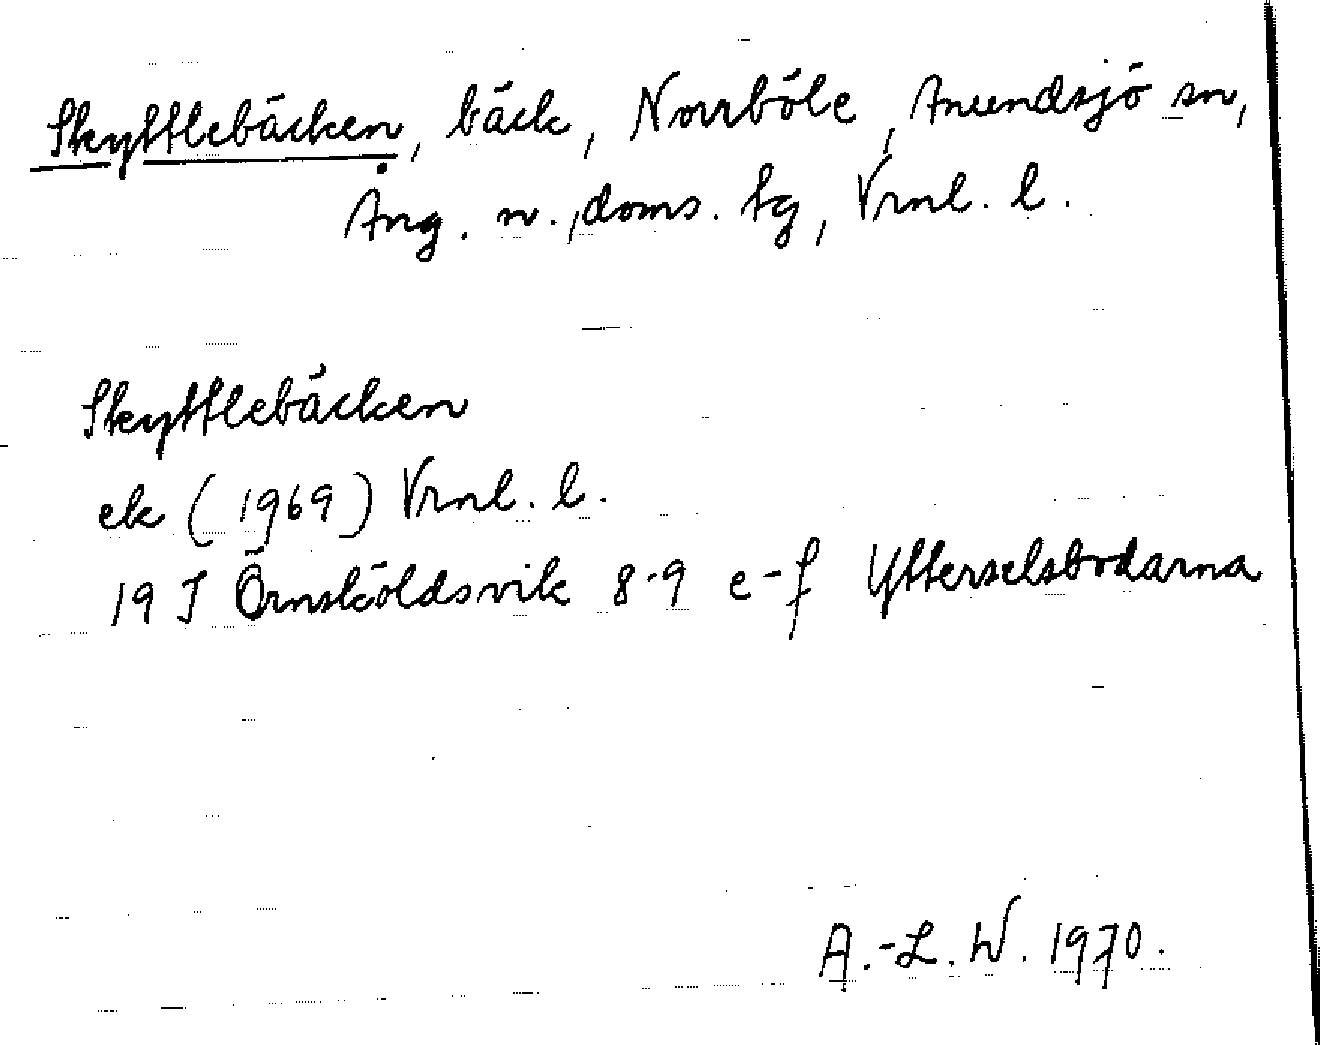 Skyttlebäcken, bäck, Norrböle, Anundsjö sn,
Ång. n., doms. tg, Vrnl. l.
Skyttlebäcken
ek (1969) Vrnl. l.
19 J Örnsköldsvik 8-9 e-f Ytterselsbodarna
A.-L. W. 1970.